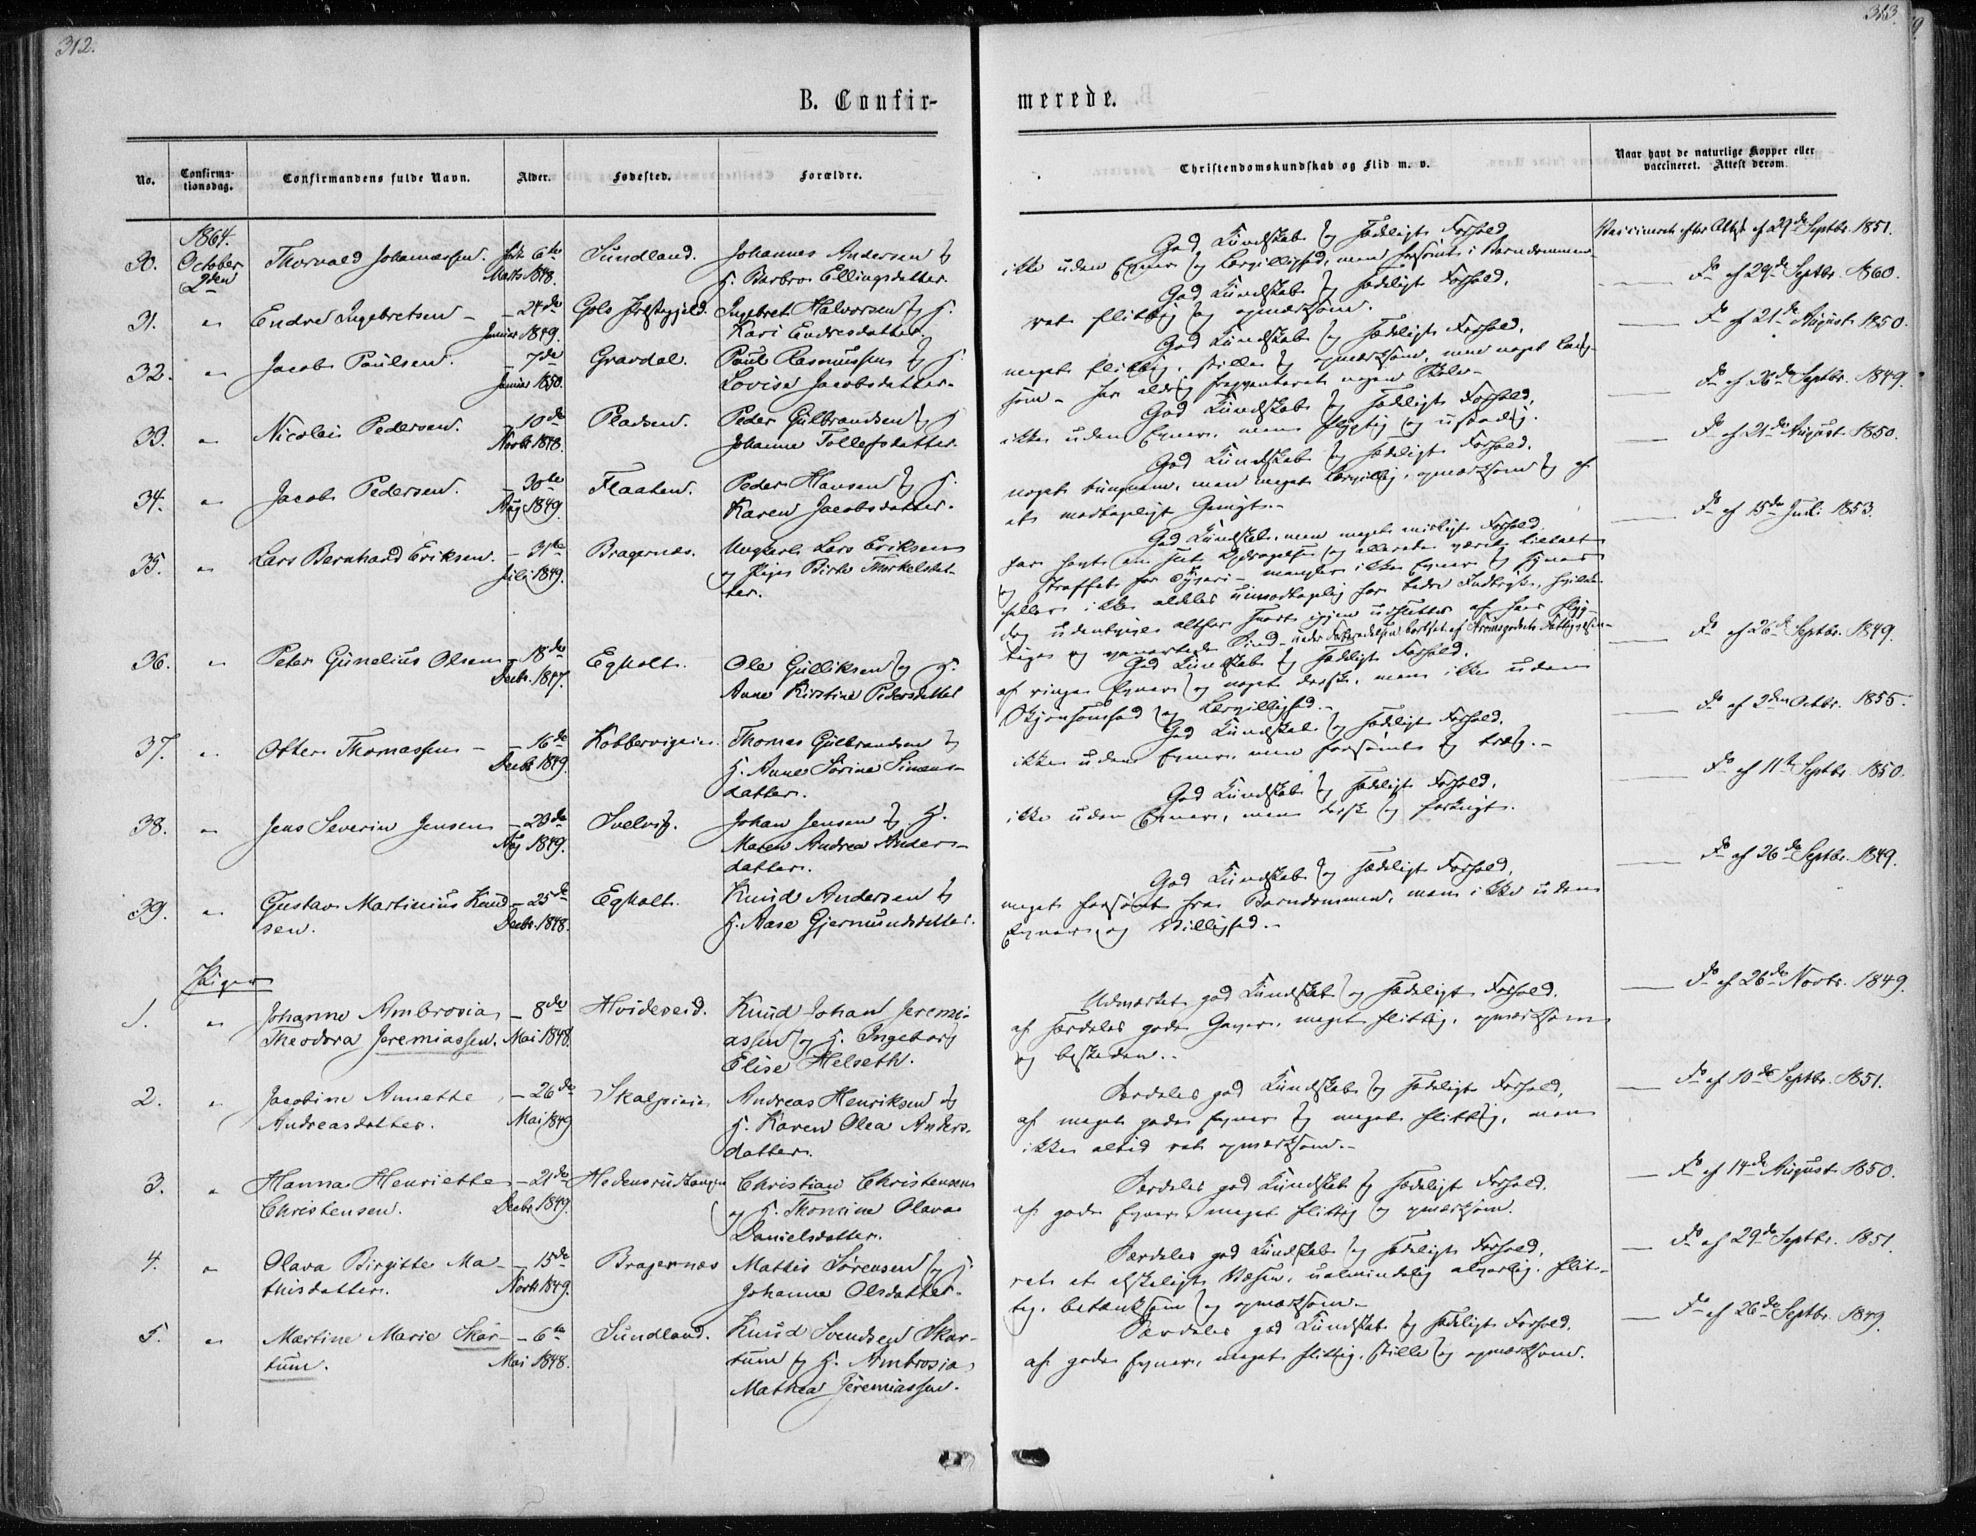 312.
313.
B. Confir-
merede.
No.
Confirma-
tionsdag.
Confirmandens fulde Navn.
Alder.
Fødested.
Forældre.
Christendomskundskab og Flid m. v.
Naar havt de naturlige Kopper eller
vaccineret. Attest derom.
1864.
30. October 2den Thorvald Johannessen. 6te Marts 1848. Sundland. Johannes Andersen og
H. Barbro Ellingsdatter.
God Kundskab og sædeligt Forhold
ikke uden Evner og Lærvillighed, men forsømt i Barndommen
Vaccineret efter Attest af 29de Septbr. 1851.
31. " Endre Ingebretsen - 24de Junius 1849. Gols Præstegjeld. Ingebret Halvorsen og H.
Kari Endresdatter.
God Kundskab og sædeligt Forhold,
ret flittig og opmærksom.
Do 29de Septbr. 1860.
32. " Jacob Paulsen. - 7de Januar 1850. Gravdal. Paul Rasmussen og H.
Lovise Jacobsdatter.
God Kundskab og sædeligt Forhold,
meget flittig, stille og opmærksom, men noget lang-
som - har aldrig frequenteret nogen Skole -
Do af 21de August 1850.
33. " Nicolai Pedersen. - 10de Novbr 1848. Pladsen. Peder Gulbrandsen og H
Johanne Tollefsdatter.
God Kundskab og sædeligt Forhold,
ikke uden Evner, men flygtig og ustadig.
Do af 26de Septbr. 1849.
34. " Jacob Pedersen. - 30te Aug 1849. Flaaten. Peder Hansen og H.
Karen Jacobsdatter.
God Kundskab og sædeligt Forhold.
noget tungnem, men meget lærvillig, opmærksom og af
et modtageligt Gemyt.-
Do af 21de August 1850.
35. " Lars Bernhard Eriksen. - 31te Juli 1849. Bragernæs. Ungkarl Lars Eriksen
og Pige Birte Thorkelsdat-
ter.
God Kundskab, men meget
og straffet for Tyveri - mangler ikke Evner og synes
heller ikke aldeles umodtagelig for bedre Indtryk,
Do af 15de Juli 1853.
36. " Peter Gunelius Olsen - 18de Decbr. 1847. Egholt. Ole Gulliksen og H.
Anne Kirstine Pedersdatter
God Kundskab og sædeligt Forhold,
af ringe Evner og noget dorsk, men ikke uden
Skjønsomhed og Lærvillighed.-
Do af 26de Septbr. 1849.
37. " Otter Thomassen - - 16de Decbr 1849. Kobbervigen. Thomas Gulbrandsen og
H. Anne Sørine Simens-
datter.
God Kundskab og sædeligt Forhold,
ikke uden Evner, men forsømt og træg.-
Do af 3den Octbr. 1855.
38. " Jens Severin Jensen - 20de Aug 1849. Svelvig. Johan Jensen og H.
Maren Andrea Anders-
datter.
God Kundskab og sædeligt Forhold,
ikke uden Evner, men dorsk og forknyt.
Do af 11te Septbr. 1850.
39. " Gustav Martinius Knud-
sen. - 25de Decbr. 1848. Egholt. Knud Andersen og
H. Aase Gjermundsdatter.
God Kundskab og sædeligt Forhold,
meget forsømt fra Barndommen, men ikke uden
Evner og Villighed.-
Do af 26de Septbr. 1849.
Piger
1. " Johanne Ambrosia
Theodora Jeremiassen. - 8de Mai 1848. Hvideseid. Knud Johan Jeremi-
assen og H. Ingeborg
Elise Helseth.
Udmærket god Kundskab og sædeligt Forhold.
af særdeles gode Gaver, meget flittig, opmærksom
og beskeden.-
Do af 26de Novbr. 1849.
2. " Jacobine Annette
Andreasdatter. - 26de Mai 1849 Andreas Henriksen og
H. Karen Olea Anders-
datter.
Særdeles god Kundskab og sædeligt Forhold,
af meget gode Evner og meget flittig, men
ikke altid ret opmærksom.-
Do af 10de Septbr. 1851.
3. " Hanna Henriette
Christensen. - 21de Decbr 1849. Christian Christensen
og H. Thomine Olava
Danielsdatter.
Særdeles god Kundskab og sædeligt Forhold.
af gode Evner, meget flittig og opmærksom.
Do af 14de August 1850.
4. " Olava Birgitte Ma-
thisdatter. - 15de Novbr 1849. Bragernæs Mathis Sørensen og H.
Johanne Olsdatter.
Særdeles god Kundskab og sædeligt Forhold,
ret et elskeligt Væsen, ualmindelig alvorlig, flit-
tig, betænksom og opmærksom.-
Do af 29de Septbr. 1851.
5. " Martine Marie Skar-
tum. - 6te Mai 1848. Sundland. Knud Svendsen Skar-
tum og H. Ambrosia
Mathea Jeremiassen.
Særdeles god Kundskab og sædeligt Forhold.
af gode Evner, meget flittig, stille og opmærksom.
Do af 26de Septbr. 1849.